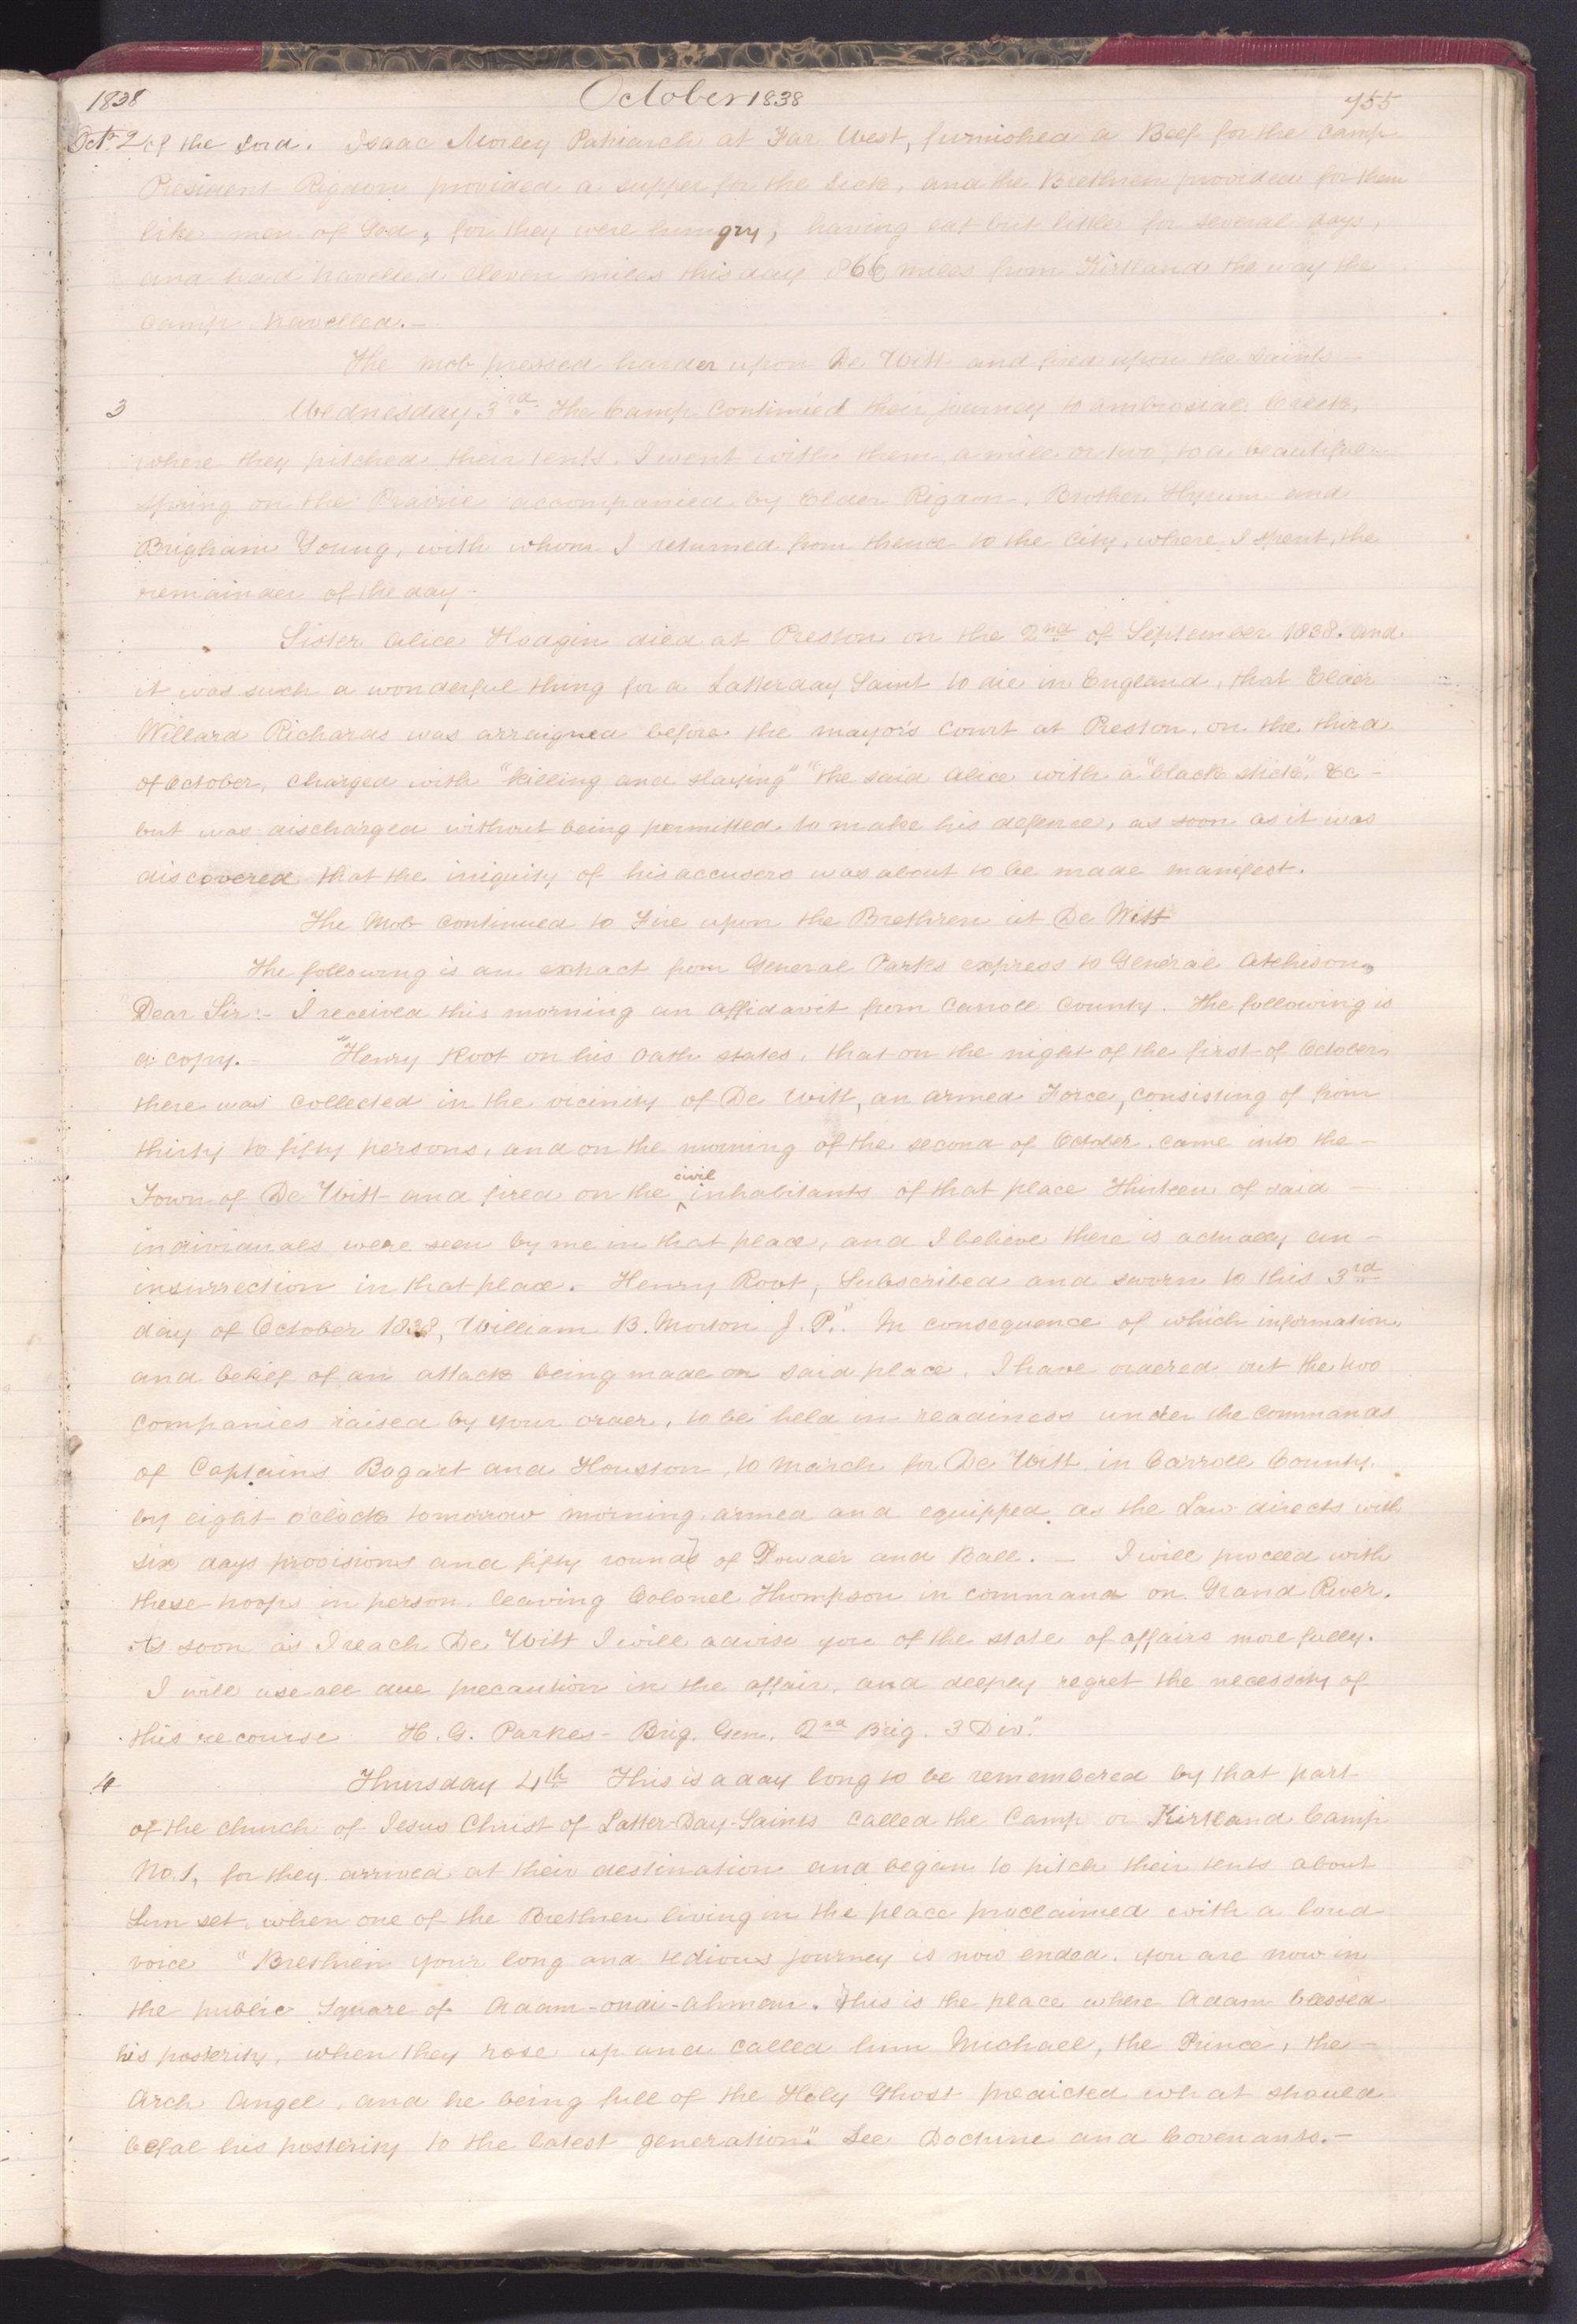 1838 October 1838 755
Oct. 2 of the Lord. Isaac Morley Patriarch at Far West, furnished a Beef for the camp
President Rigdon provided a supper for the Sick, and the Brethren provided for them
like men of God, for they were hungry, having eat but little for several days,
and had travelled eleven miles this day 866 miles from Kirtland the way the
Camp travelled.—
The mob pressed harder upon De Witt and fired upon the Saints—
3 Wednesday 3rd The Camp Continued their journey to Ambrosial Creek,
where they pitched their tents. I went with them a mile or two, to a beautiful
spring on the Prairie accompanied by Elder Rigdon, Brother Hyrum and
Brigham Young, with whom I returned from thence to the City, where I spent the
remainder of the day—
Sister Alice Hodgin died at Preston on the 2nd of September 1838. and
it was such a wonderful thing for a Latterday Saint to die in England, that Elder
Willard Richards was arraigned before the mayor's Court at Preston, on the third
of October, charged with "killing and slaying" "the said Alice with a "black stick", &c—
but was discharged without being permitted to make his defence, as soon as it was
discovered that the iniquity of his accusers was about to be made manifest.
The Mob continued to Fire upon the Brethren at De Witt
The following is an extract from General Parks express to General Atchison,
"Dear Sir:— I received this morning an affidavit from Carroll County. The following is
a copy.— "Henry Root on his oath states, that on the night of the first of October
there was collected in the vicinity of De Witt, an armed Force, consisting of from
thirty to fifty persons, and on the morning of the second of October, came into the—
Town of De Witt and fired on the ^civil inhabitants of that place Thirteen of said—
individuals were seen by me in that place, and I believe there is actually an—
insurrection in that place. Henry Root, Subscribed and sworn to this 3rd
day of October 1838, William B. Morton J. P." In consequence of which information,
and belief of an attack being made on said place, I have ordered out the two
companies raised by your order, to be held in readiness under the commands
of Captains Bogart and Houston, to march for De Witt in Carroll County
by eight o'clock tomorrow morning armed and equipped as the Law directs with
six days provisions and fifty rounds of Powder and Ball.— I will proceed with
these troops in person, leaving Colonel Thompson in command on Grand River.
As soon as I reach De Witt I will advise you of the state of affairs more fully.
I will use all due precaution in the affair, and deeply regret the necessity of
this recourse H. G. Parkes— Brig. Gen. 2nd Brig. 3 Div."
4 Thursday 4th This is a day long to be remembered by that part
of the church of Jesus Christ of Latter-Day-Saints called the Camp or Kirtland Camp
No. 1, for they arrived at their destination and began to pitch their tents about
Sun set, when one of the Brethren living in the place proclaimed with a loud
voice "Brethren your long and tedious journey is now ended. you are now in
the public Square of Adam-ondi-Ahman. This is the place where Adam blessed
his posterity, when they rose up and called him Michael, the Prince, the—
Arch Angel, and he being full of the Holy Ghost predicted what should
befal his posterity to the latest generation." See Doctrine and Covenants.—